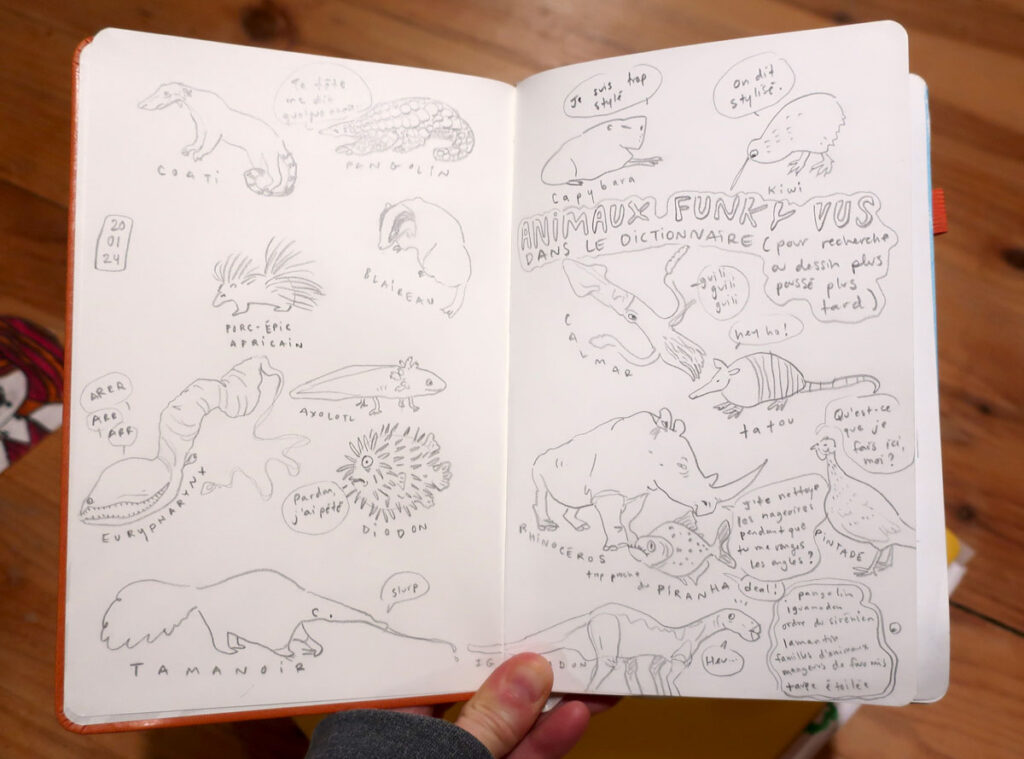 COATI
Ta tête
me dit
quelque chose
PANGOLIN
20
01
24
BLAIREAU
PORC-ÉPIC
AFRICAIN
ARRR
ARR
ARR
AXOLOTL
EURYPHARYNX
pardon,
j'ai pété
DIODON
slurp
TAMANOIR
Je suis trop
stylé
On dit
stylisé.
capybara
kiwi
ANIMAUX FUNKY VUS
DANS LE DICTIONNAIRE (pour recherche
ou dessin plus
poussé plus
tard)
guili
guili
guili
CALMAR
hey ho!
tatou
Qu'est-ce
que je
fais ici,
moi?
RHINOCÉROS
j'te nettoye
les nageoires
pendant que
tu me ranges
les ongles?
PINTADE
trop proche
du PIRANHA
(deal!)
Heu...
IG DON
pangolin
iguanodon
ordre du sirénien
lamantin
familles d'animaux
mangeurs de fourmis
taupe étoilée